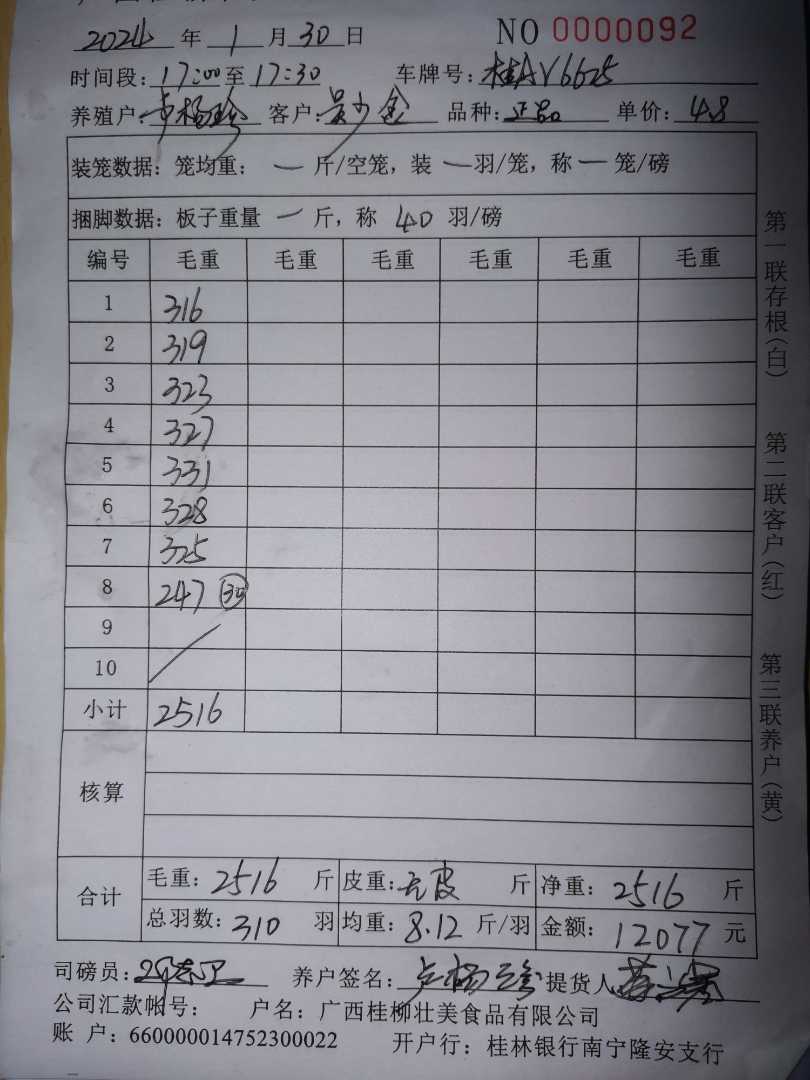 2024 年 1 月 30 日 NO 0000092
时间段: 17:00 至 17:30 车牌号: 桂AV6625
养殖户: 卢杨珍 客户: 吴少金 品种: 正品 单价: 4.8
装笼数据: 笼均重: 一 斤/空笼, 装 一 羽/笼, 称 一 笼/磅
捆脚数据: 板子重量 一 斤, 称 40 羽/磅
编号 毛重 毛重 毛重 毛重 毛重 毛重
1 316
2 319
3 323
4 327
5 331
6 328
7 325
8 247 30
9
10
小计 2516
核算
合计 毛重: 2516 斤 皮重: 无皮 斤 净重: 2516 斤
总羽数: 310 羽 均重: 8.12 斤/羽 金额: 12077 元
司磅员: 养户签名: 卢杨珍 提货人
公司汇款帐号: 户名: 广西桂柳壮美食品有限公司
账 户: 660000014752300022 开户行: 桂林银行南宁隆安支行
第一联存根(白) 第二联客户(红) 第三联养户(黄)